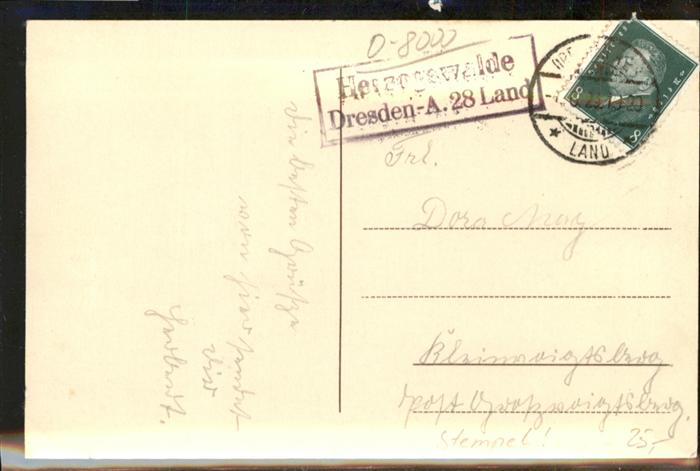 D-8000
Herzogswalde
Dresden-A. 28 Land
LAND
8
8
Frl.
Dora May
Kleinvoigtsberg
Post Großvoigtsberg.
Stempel! 25,-
die besten Grüße
von hier sendet
Dir
Herbert.